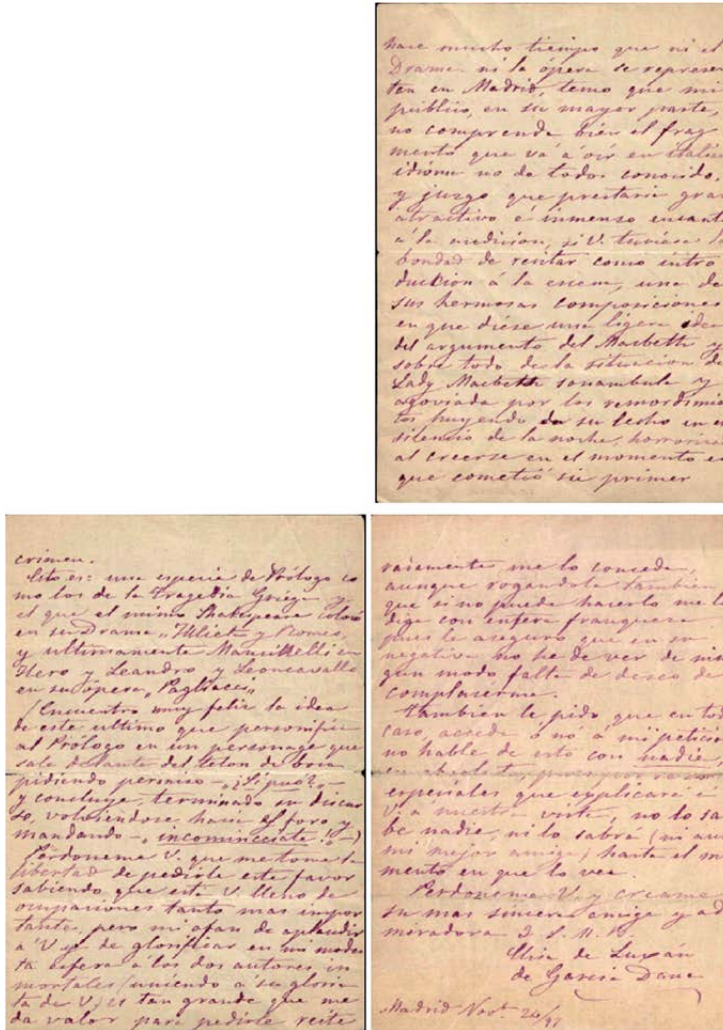 hace mucho tiempo que ni el
Drama ni la ópera se represen
ten en Madrid, temo que mi
público, en su mayor parte,
no comprenda bien el frag
mento que vá á oir en italia
idioma no de todos conocido,
y juzgo que prestaria gra
atractivo é inmenso encant
á la audicion, si V. tuviese l
bondad de recitar como intro
duccion á la escena, una de
sus hermosas composiciones
en que diése una ligera idea
del argumento del Macbetth y
sobre todo de la situacion de
Lady Macbetth sonambula y
agoviada por los remordimie
tos huyendo de su lecho en el
silencio de la noche, horroriza
al creerse en el momento en
que cometió su primer
crimen.
Esto es: una especie de Prólogo co
mo los de la Tragedia Griega y
el que el mismo Shakespeare colocó
en su Drama „Julieta y Romeo„
y ultimamente Mancinelli en
Hero y Leandro y Leoncavallo
en su ópera „Pagliacci„
(Encuentro muy feliz la idea
de este ultimo que personifica
al Prólogo en un personage que
sale delante del telon de boca
pidiendo permiso —„¿Si puó?„—
y concluye, terminado su discur
so, volviendose hacia el foro y
mandando —„incominciate!„—)
Perdoneme V. que me tome la
libertad de pedirle este favor
sabiendo que está V. lleno de
ocupaciones tanto mas impor
tantes, pero mi afan de aplaudir
á V. y de glorificar en mi modes
ta esfera á los dos autores in
mortales (uniendo á su gloria
la de V.) es tan grande que me
da valor para pedirle recite
me lo conceda,
aunque rogandole tambien
que si no puede hacerlo me lo
diga con entera franqueza
pues le aseguro que en su
negativa no he de ver de nin
gun modo falta de deseo de
complacerme.
Tambien le pido que en tod
caso, acceda ó nó á mi peticio
no hable de esto con nadie,
en absoluto, pues por razon
especiales que explicaré á
V. á nuestra vista, no lo sa
be nadie, ni lo sabrá (ni aun
mi mejor amiga) hasta el mo
mento en que lo vea.
Perdoneme V. y creame
su mas sincera amiga y ad
miradora
Elisa de Luxán
de Garcia Dana
Madrid Novb 20/97